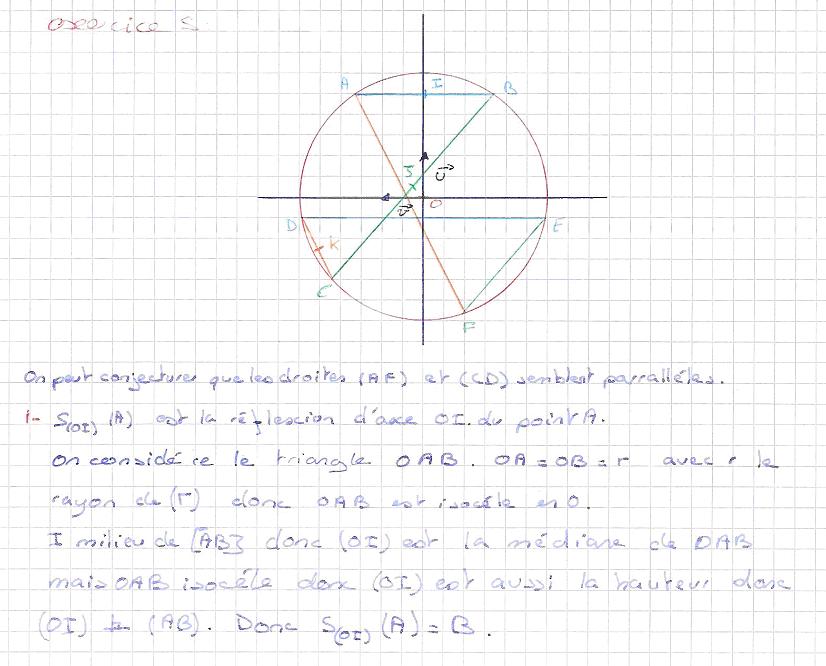 exercice 5.
A I B
J
U
V O
D E
K
C
F
On peut conjecturer que les droites (AF) et (CD) semblent parralléles.
1- S(OI) (A) est la réflescion d'axe OI. du point A.
On considére le triangle OAB. OA = OB = r avec r le
rayon de (Γ) donc OAB est isocéle en O.
I milieu de [AB] donc (OI) est la médiane de OAB
mais OAB isocéle donc (OI) est aussi la hauteur donc
(OI) ⊥ (AB). Donc S(OI) (A) = B.